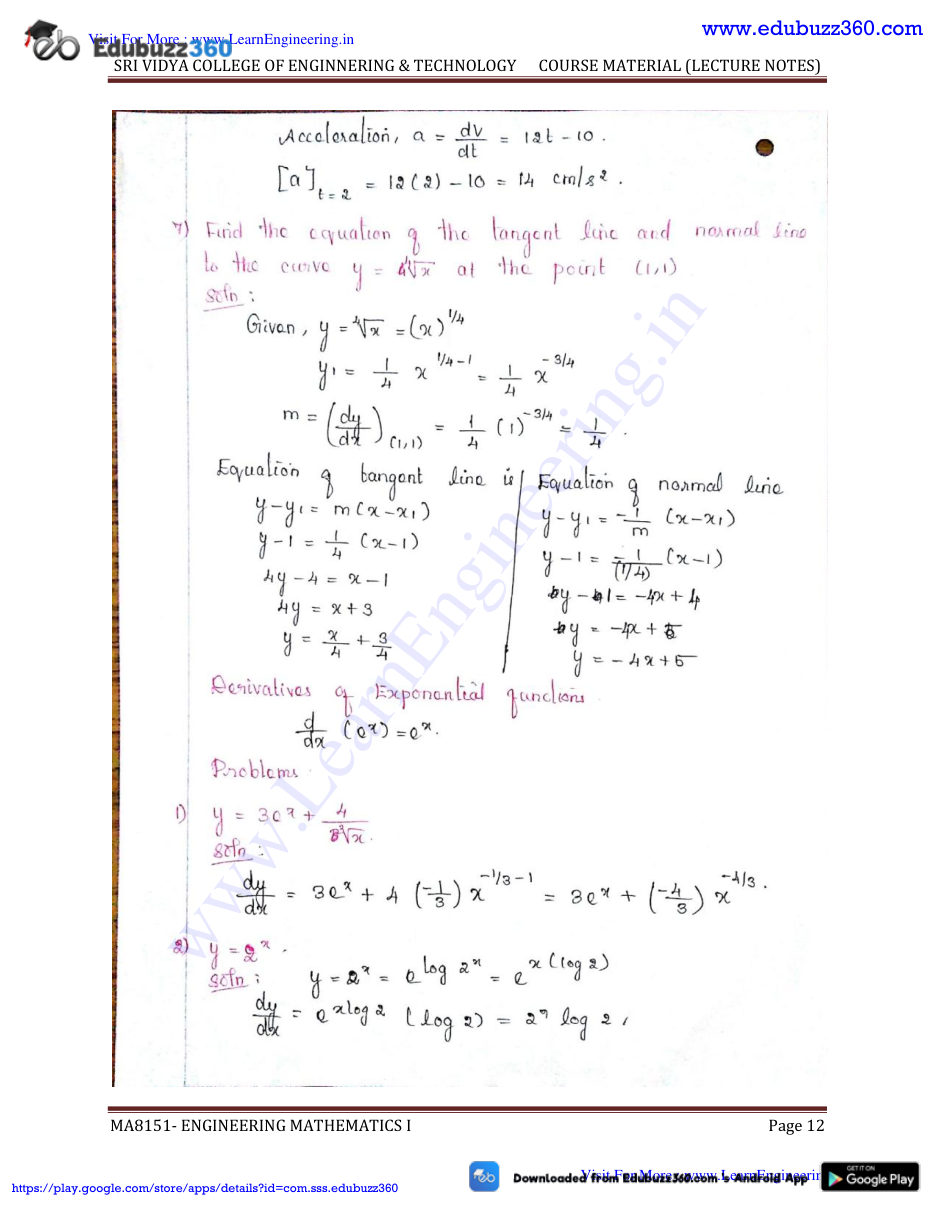 www.edubuzz360.com
Visit For More : www.LearnEngineering.in
Edubuzz360
SRI VIDYA COLLEGE OF ENGINNERING & TECHNOLOGY COURSE MATERIAL (LECTURE NOTES)
Acceleration, a = dv/dt = 12t - 10.
[a]t=2 = 12(2) - 10 = 14 cm/s².
7) Find the equation of the tangent line and normal line
to the curve y = ∜x at the point (1,1)
Soln :
Given, y = ∜x = (x)^1/4
y' = 1/4 x^1/4-1 = 1/4 x^-3/4
m = (dy/dx)(1,1) = 1/4 (1)^-3/4 = 1/4.
Equation of tangent line is
y-y₁ = m(x-x₁)
y-1 = 1/4 (x-1)
4y-4 = x-1
4y = x+3
y = x/4 + 3/4
Equation of normal line
y-y₁ = -1/m (x-x₁)
y-1 = -1/(1/4) (x-1)
y-1 = -4x+4
y = -4x+5
y = -4x+5
Derivatives of Exponential functions.
d/dx (e^x) = e^x.
Problems.
1) y = 3e^x + 4/∛x.
Soln :
dy/dx = 3e^x + 4 (-1/3) x^-1/3-1 = 3e^x + (-4/3) x^-4/3.
2) y = 2^x.
Soln : y = 2^x = e^log 2^x = e^x(log 2)
dy/dx = e^xlog2 (log 2) = 2^x log 2,
www.LearnEngineering.in
MA8151- ENGINEERING MATHEMATICS I Page 12
https://play.google.com/store/apps/details?id=com.sss.edubuzz360
Downloaded from EduBuzz360.com 's Android App
Visit For More : www.LearnEngineerin
GET IT ON
Google Play